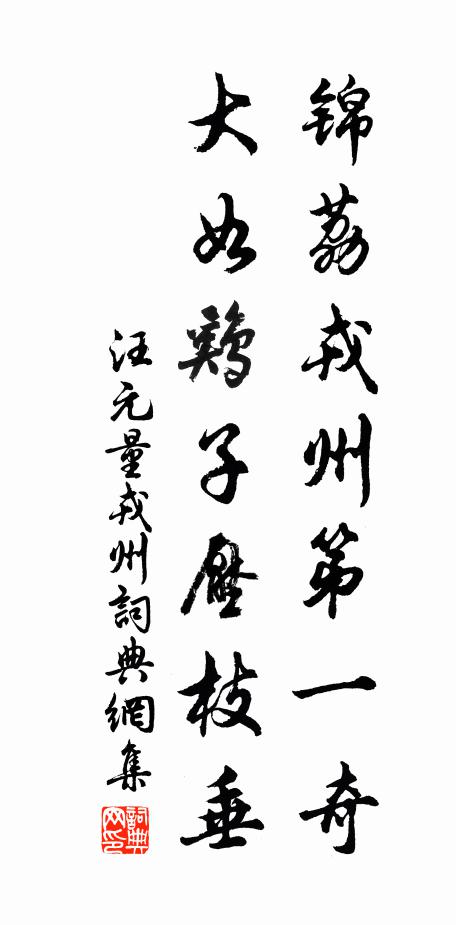 锦荔戎州第一奇
大如鷄子壓枝垂
汪元量戎州詞典網集
詞典网印